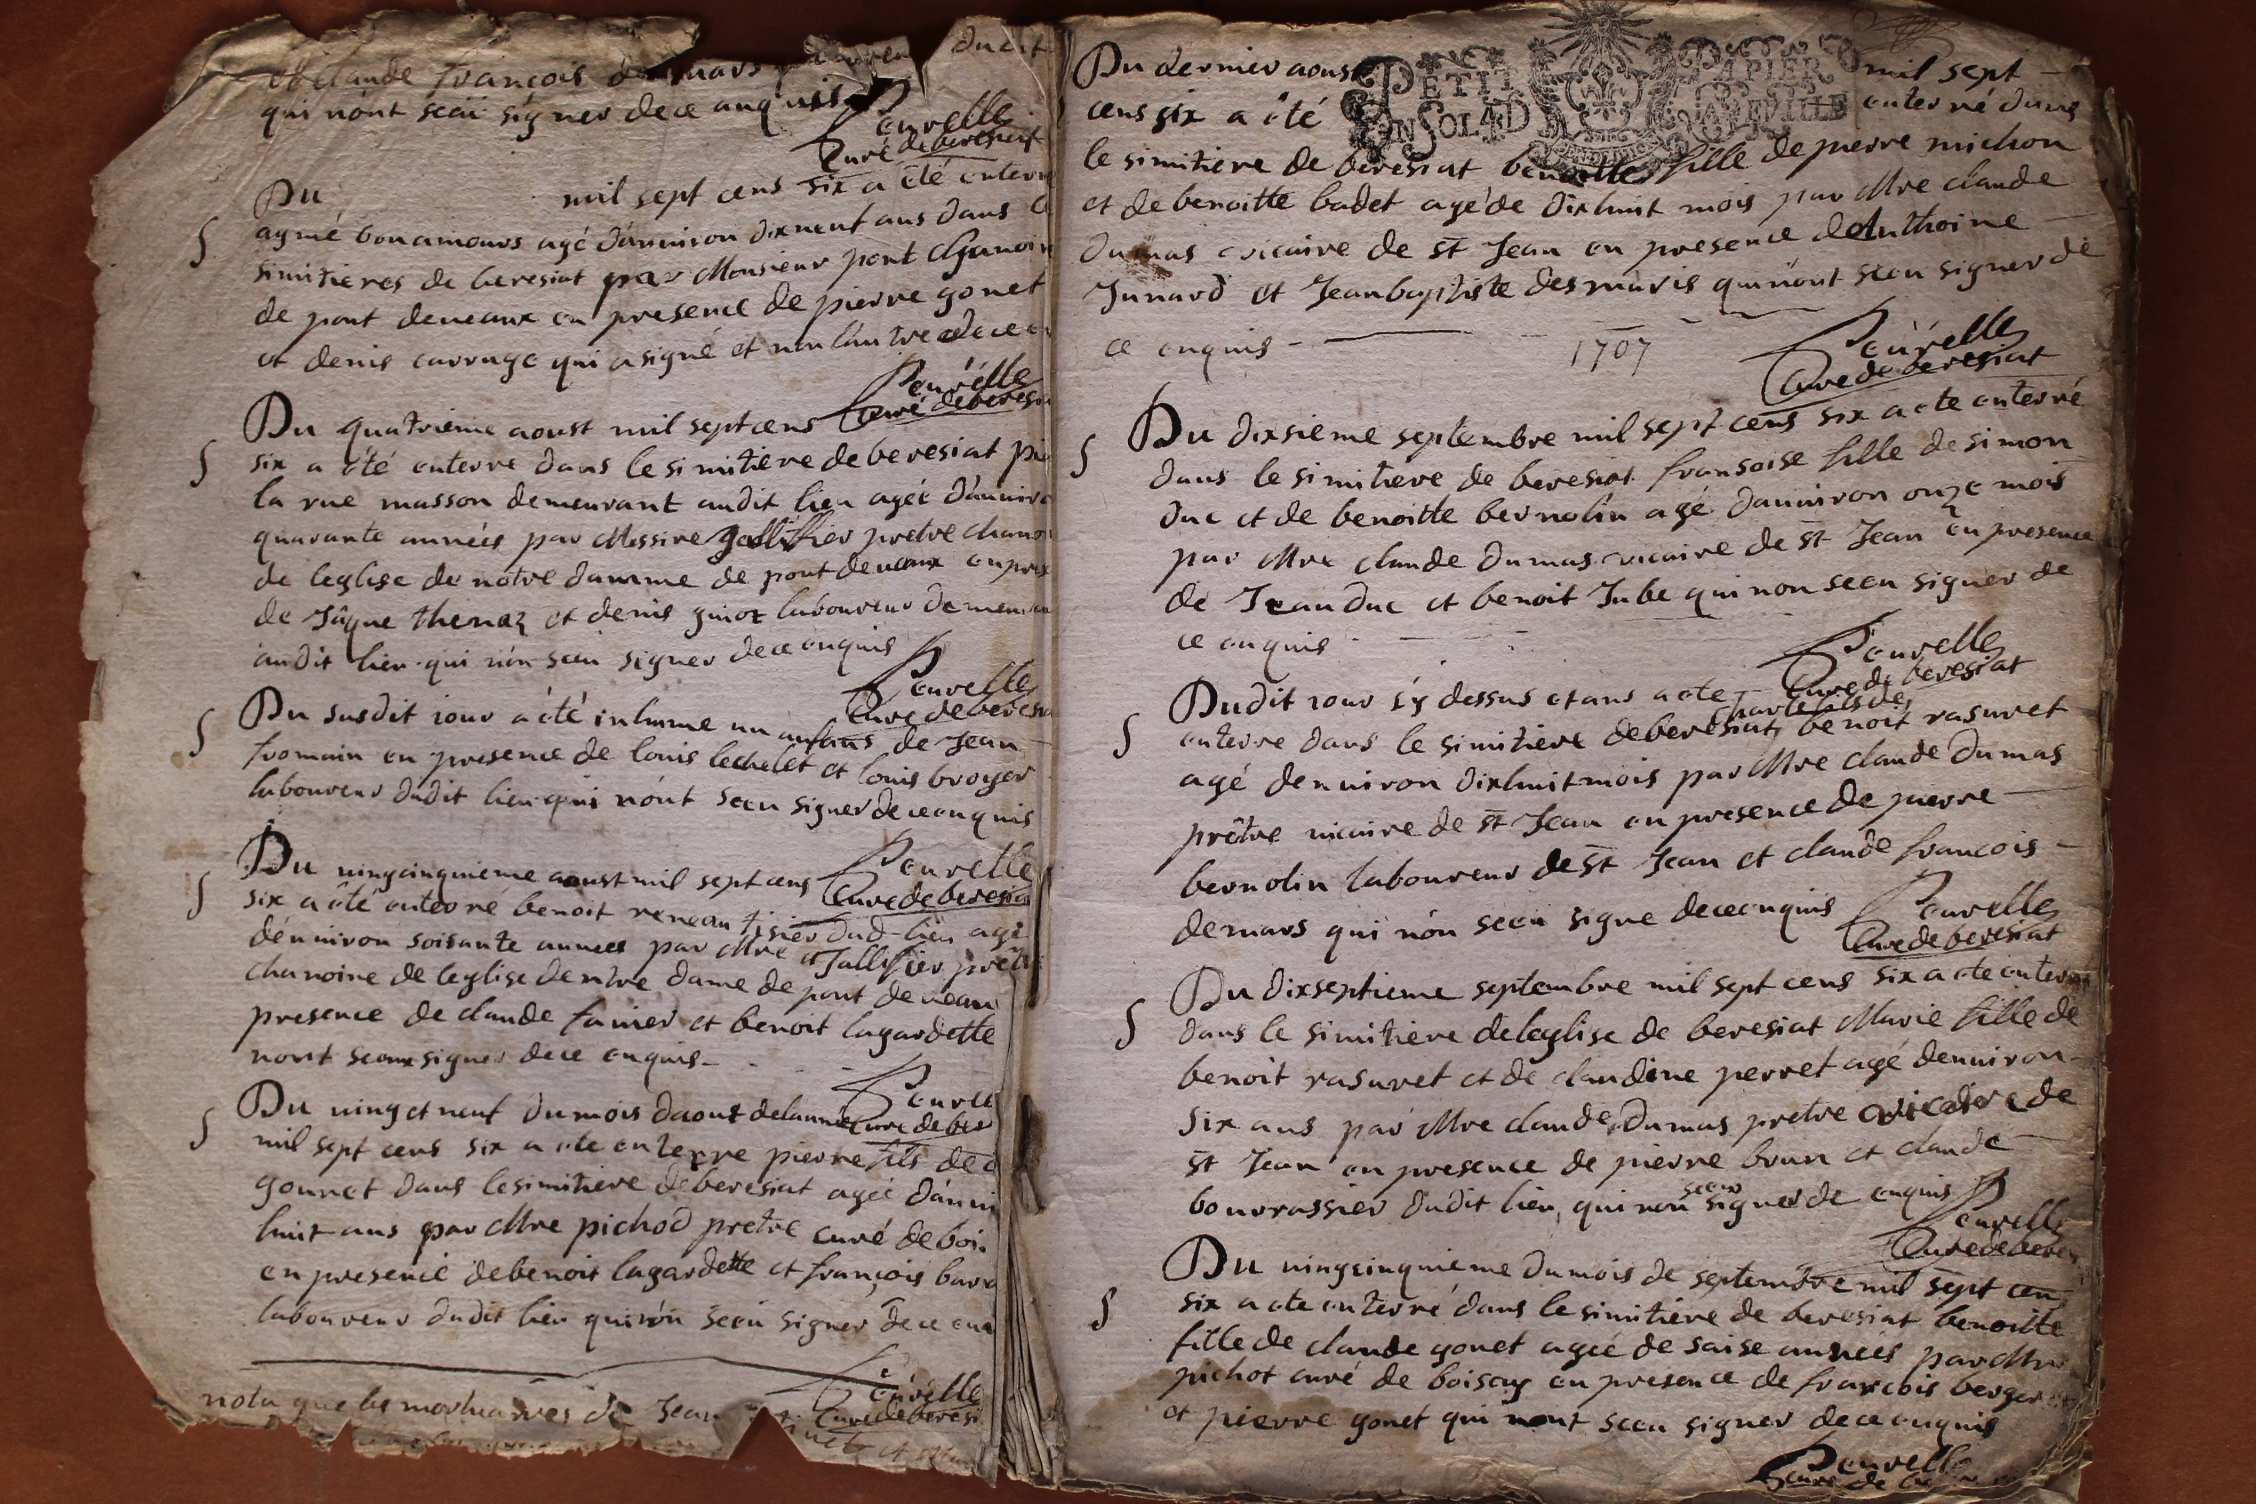 et claude françois demars dudit
qui n'ont sceü signer de ce anquis
Peuvelle
Curé de beresiat
Du mil sept cens six a été enterré
agmé bonamours agé d'anuiron dixneuf ans dans le
simitieres de beresiat par Monsieur pont Chanoine
de pont deueaux en presence de pierre gonet
et denis carruge qui a signé et non l'autre de ce en
Peuvelle
Curé de beresia
Du quatrieme aoust mil sept cens
six a été enterre dans le simitiere de beresiat pie
la rue masson demeurant audit lieu agée d'anuiro
quarante années par Messire Jallifier pretre chanoi
de leglise de notre damme de pont deueaux en pres
de Jâque thenaz et denis guiot laboureur demeuran
audit lieu qui n'on sceu signer de ce enquis
Peuvelle
Curé de beresia
Du susdit iour a été inhume un anfans de Jean
fromain en presence de louis lechelet et louis broyer
laboureur dudit lieu qui n'ont sceu signer de ce enquis
Peuvelle
Curé de beresia
Du uingcinquieme aoust mil sept cens
six a été enterré benoit reneau tisier dud lieu agé
d'enuiron soisante années par Mre Jallifier prêtr
chanoine de leglise de ntre dame de pont de ueau
presence de claude fanier et benoit lagardette
nont sceu signer de ce enquis
Peuvell
Curé de ber
Du uingt neuf du mois daoust de lannee
mil sept cens six a ete enterre pierre fils de c
gonnet dans le simitiere de beresiat agée d'anui
huit ans par Mre pichod pretre curé de boi
en presence de benoit lagardette et françois barr
laboureur dudit lieu qui n'on sceu signer de ce enq
Peuvelle
Curé de beresi
nota que les mortuaires de Jean
Du dernier aoust mil sept
PETIT PAPIER
EN SOL 4 D LA FEUILLE
cens six a été enterré dans
le simitiere de beresiat benoitte fille de pierre michon
et de benoitte badet agé de dixhuit mois par Mre claude
dumas uicaire de st Jean en presence de Anthoine
Junard et Jean baptiste desmaris qui n'ont sceu signer de
ce enquis
1707
Peuvelle
Curé de beresiat
Du dixsieme septembre mil sept cens six a ete enterré
dans le simitiere de beresiat fransoise fille de simon
duc et de benoitte bernolin agé danuiron onze mois
par Mre claude dumas uicaire de st Jean en presence
de Jean duc et benoit Jube qui non sceu signer de
ce enquis
Peuvelle
Curé de beresiat
Dudit iour cy dessus et ans a ete
charle fils de
enterre dans le simitiere de beresiat benoit rasuret
agé denuiron dixhuit mois par Mre claude Dumas
prêtre uicaire de st Jean en presence de pierre
bernolin laboureur de st Jean et claude francois
demars qui n'on sceu signe de ce enquis
Peuvelle
Curé de beresiat
Du dixseptieme septembre mil sept cens six a ete enterré
dans le simitiere de leglise de beresiat Marie fille de
benoit rasuret et de claudine perret agé denuiron
six ans par Mre claude Dumas pretre uicaire de
st Jean en presence de pierre brun et claude
bourrassier dudit lieu, qui n'on sceu signer de enquis
Peuvelle
Curé de beres
Du uingcinquieme du mois de septembre mil sept cen
six a ete enterré dans le simitiere de beresiat benoitte
fille de claude gonet agée de saise années par Mre
pichot curé de boisey en presence de francois berger
et pierre gonet qui nont sceu signer de ce enquis
Peuvelle
Curé de